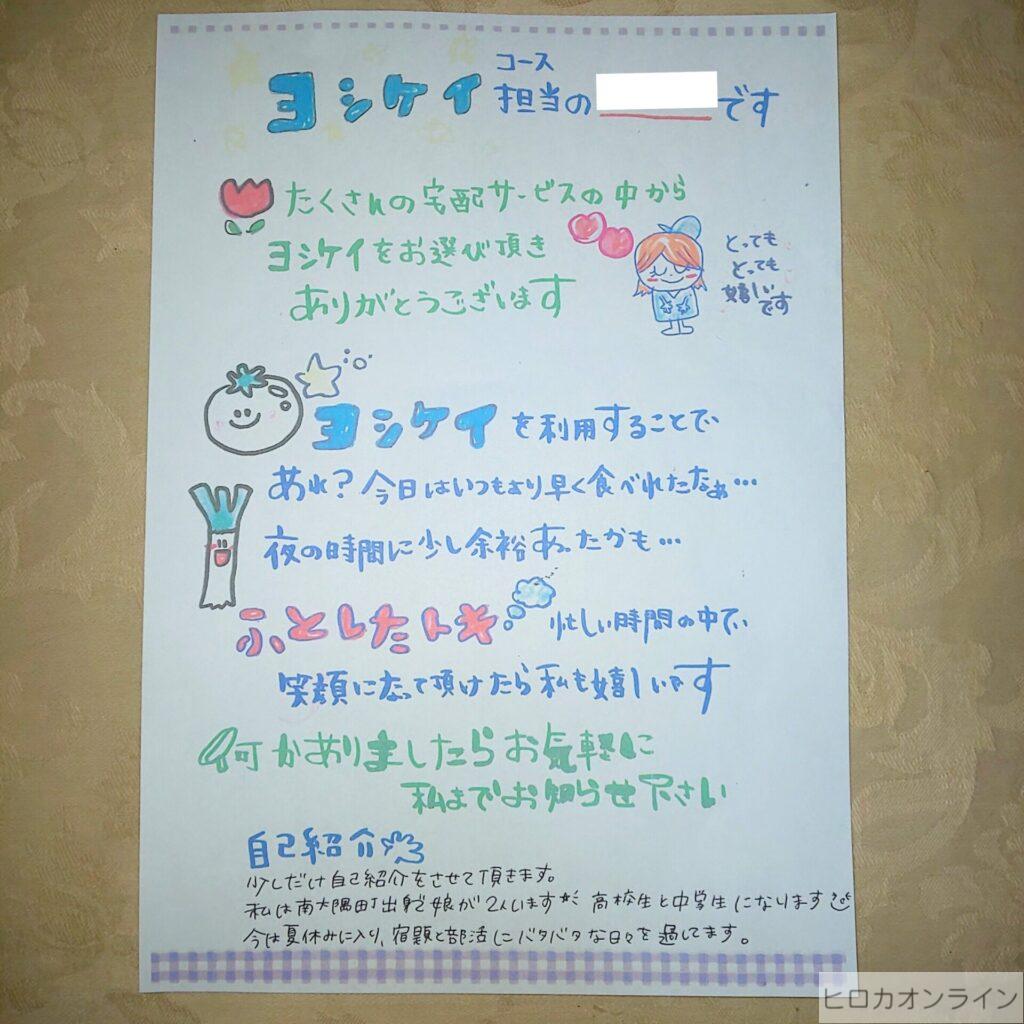 ヨシケイ コース
担当の です
たくさんの宅配サービスの中から
ヨシケイをお選び頂き
ありがとうございます
とっても
とっても
嬉しい
です
ヨシケイを利用することで、
あれ？今日はいつもより早く食べれたなぁ…
夜の時間に少し余裕あったかも…
ふとしたトキ 忙しい時間の中で、
笑顔になって頂けたら私も嬉しいです
何かありましたらお気軽に
私までお知らせ下さい
自己紹介
少しだけ自己紹介をさせて頂きます。
私は南大隅町出身で娘が2人います 高校生と中学生になります
今は夏休みに入り、宿題と部活にバタバタな日々を過してます。
ヒロカオンライン